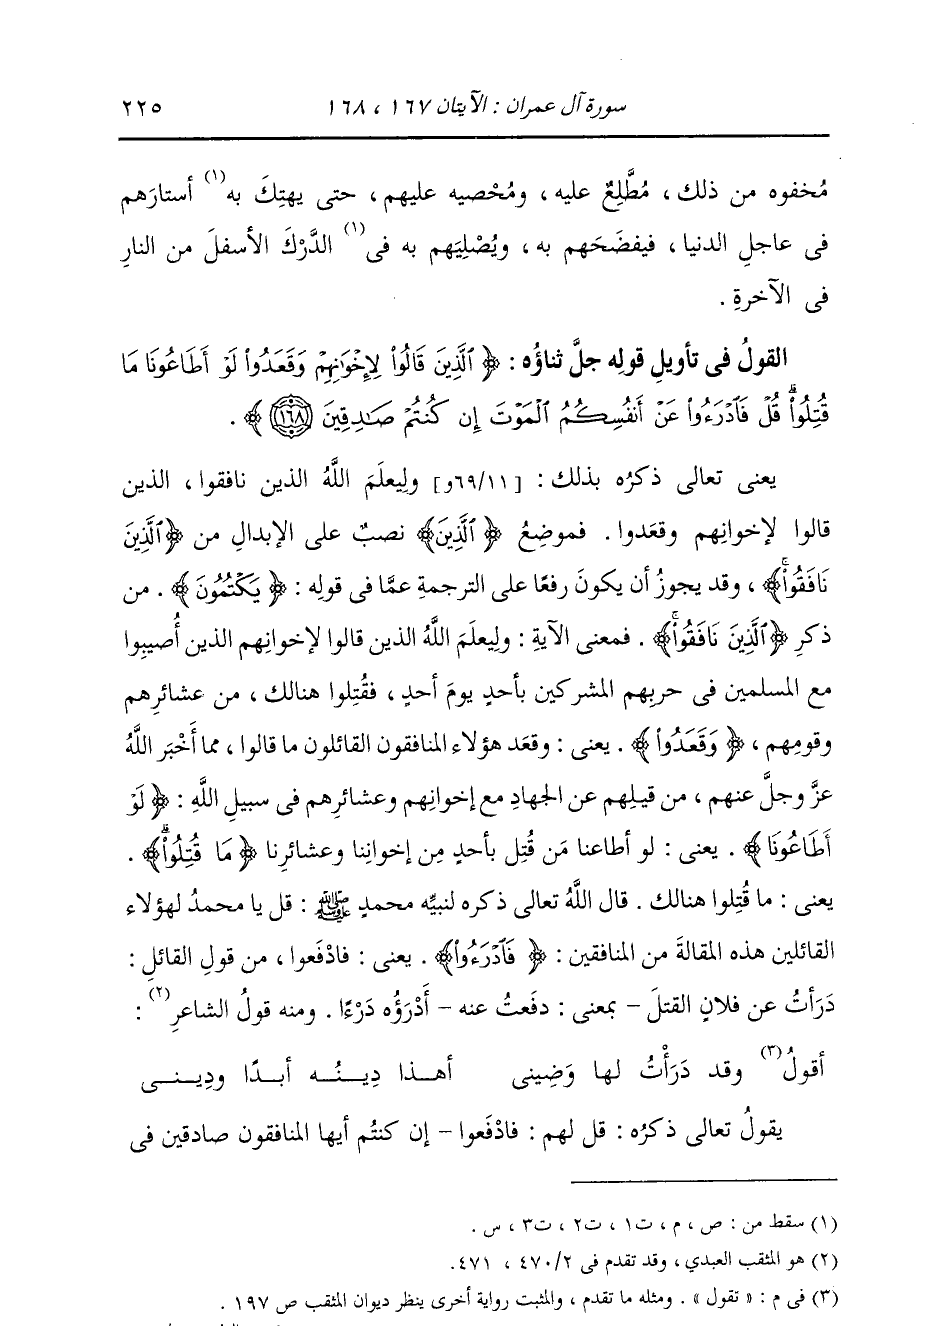 سورة آل عمران : الآيتان ١٦٧ ، ١٦٨ ٢٢٥
مُخفوه من ذلك ، مُطَّلِعٌ عليه ، ومُحْصيه عليهم ، حتى يهتِكَ به(١) أستارَهم
فى عاجلِ الدنيا ، فيفضَحَهم به ، ويُصْلِيَهم به فى(١) الدَّرْكَ الأسفلَ من النارِ
فى الآخرةِ .
القولُ فى تأويلِ قولِه جلَّ ثناؤُه : ﴿ ٱلَّذِينَ قَالُواْ لِإِخْوَٰنِهِمْ وَقَعَدُواْ لَوْ أَطَاعُونَا مَا
قُتِلُواْۗ قُلْ فَٱدْرَءُواْ عَنْ أَنفُسِكُمُ ٱلْمَوْتَ إِن كُنتُمْ صَٰدِقِينَ ١٦٨ ﴾ .
يعنى تعالى ذكرُه بذلك : [٦٩/١١و] ولِيعلَمَ اللَّهُ الذين نافقوا ، الذين
قالوا لإخوانِهم وقعَدوا . فموضِعُ ﴿ ٱلَّذِينَ﴾ نصبٌ على الإبدالِ من ﴿ٱلَّذِينَ
نَافَقُواْۚ﴾ ، وقد يجوزُ أن يكونَ رفعًا على الترجمةِ عمَّا فى قولِه : ﴿ يَكْتُمُونَ ﴾ . من
ذكرِ ﴿ٱلَّذِينَ نَافَقُواْۚ﴾ . فمعنى الآيةِ : ولِيعلَمَ اللَّهُ الذين قالوا لإخوانِهم الذين أُصيبوا
مع المسلمين فى حربِهم المشركين بأحدٍ يومَ أحدٍ ، فقُتِلوا هنالك ، من عشائرِهم
وقومِهم ، ﴿ وَقَعَدُواْ ﴾ . يعنى : وقعَد هؤلاء المنافقون القائلون ما قالوا ، مما أَخْبَر اللَّهُ
عزَّ وجلَّ عنهم ، من قيلِهم عن الجهادِ مع إخوانِهم وعشائرِهم فى سبيلِ اللَّهِ : ﴿ لَوْ
أَطَاعُونَا ﴾ . يعنى : لو أطاعنا مَن قُتِل بأحدٍ مِن إخوانِنا وعشائرِنا ﴿ مَا قُتِلُواْۗ ﴾ .
يعنى : ما قُتِلوا هنالك . قال اللَّهُ تعالى ذكره لنبيِّه محمدٍ ﷺ : قل يا محمدُ لهؤلاء
القائلين هذه المقالةَ من المنافقين : ﴿ فَٱدْرَءُواْ﴾ . يعنى : فادْفَعوا ، من قولِ القائلِ :
دَرَأتُ عن فلانٍ القتلَ - بمعنى : دفَعتُ عنه - أَدْرَؤُه دَرْءًا . ومنه قولُ الشاعرِ(٢) :
أقولُ(٣) وقد دَرَأْتُ لها وَضِينى أهـذا دِينُـه أبـدًا ودِيـنـى
يقولُ تعالى ذكرُه : قل لهم : فادْفَعوا - إن كنتُم أيها المنافقون صادقين فى
(١) سقط من : ص ، م ، ت١ ، ت٢ ، ت٣ ، س .
(٢) هو المثقب العبدي ، وقد تقدم فى ٤٧٠/٢ ، ٤٧١.
(٣) فى م : « تقول » . ومثله ما تقدم ، والمثبت رواية أخرى ينظر ديوان المثقب ص ١٩٧ .